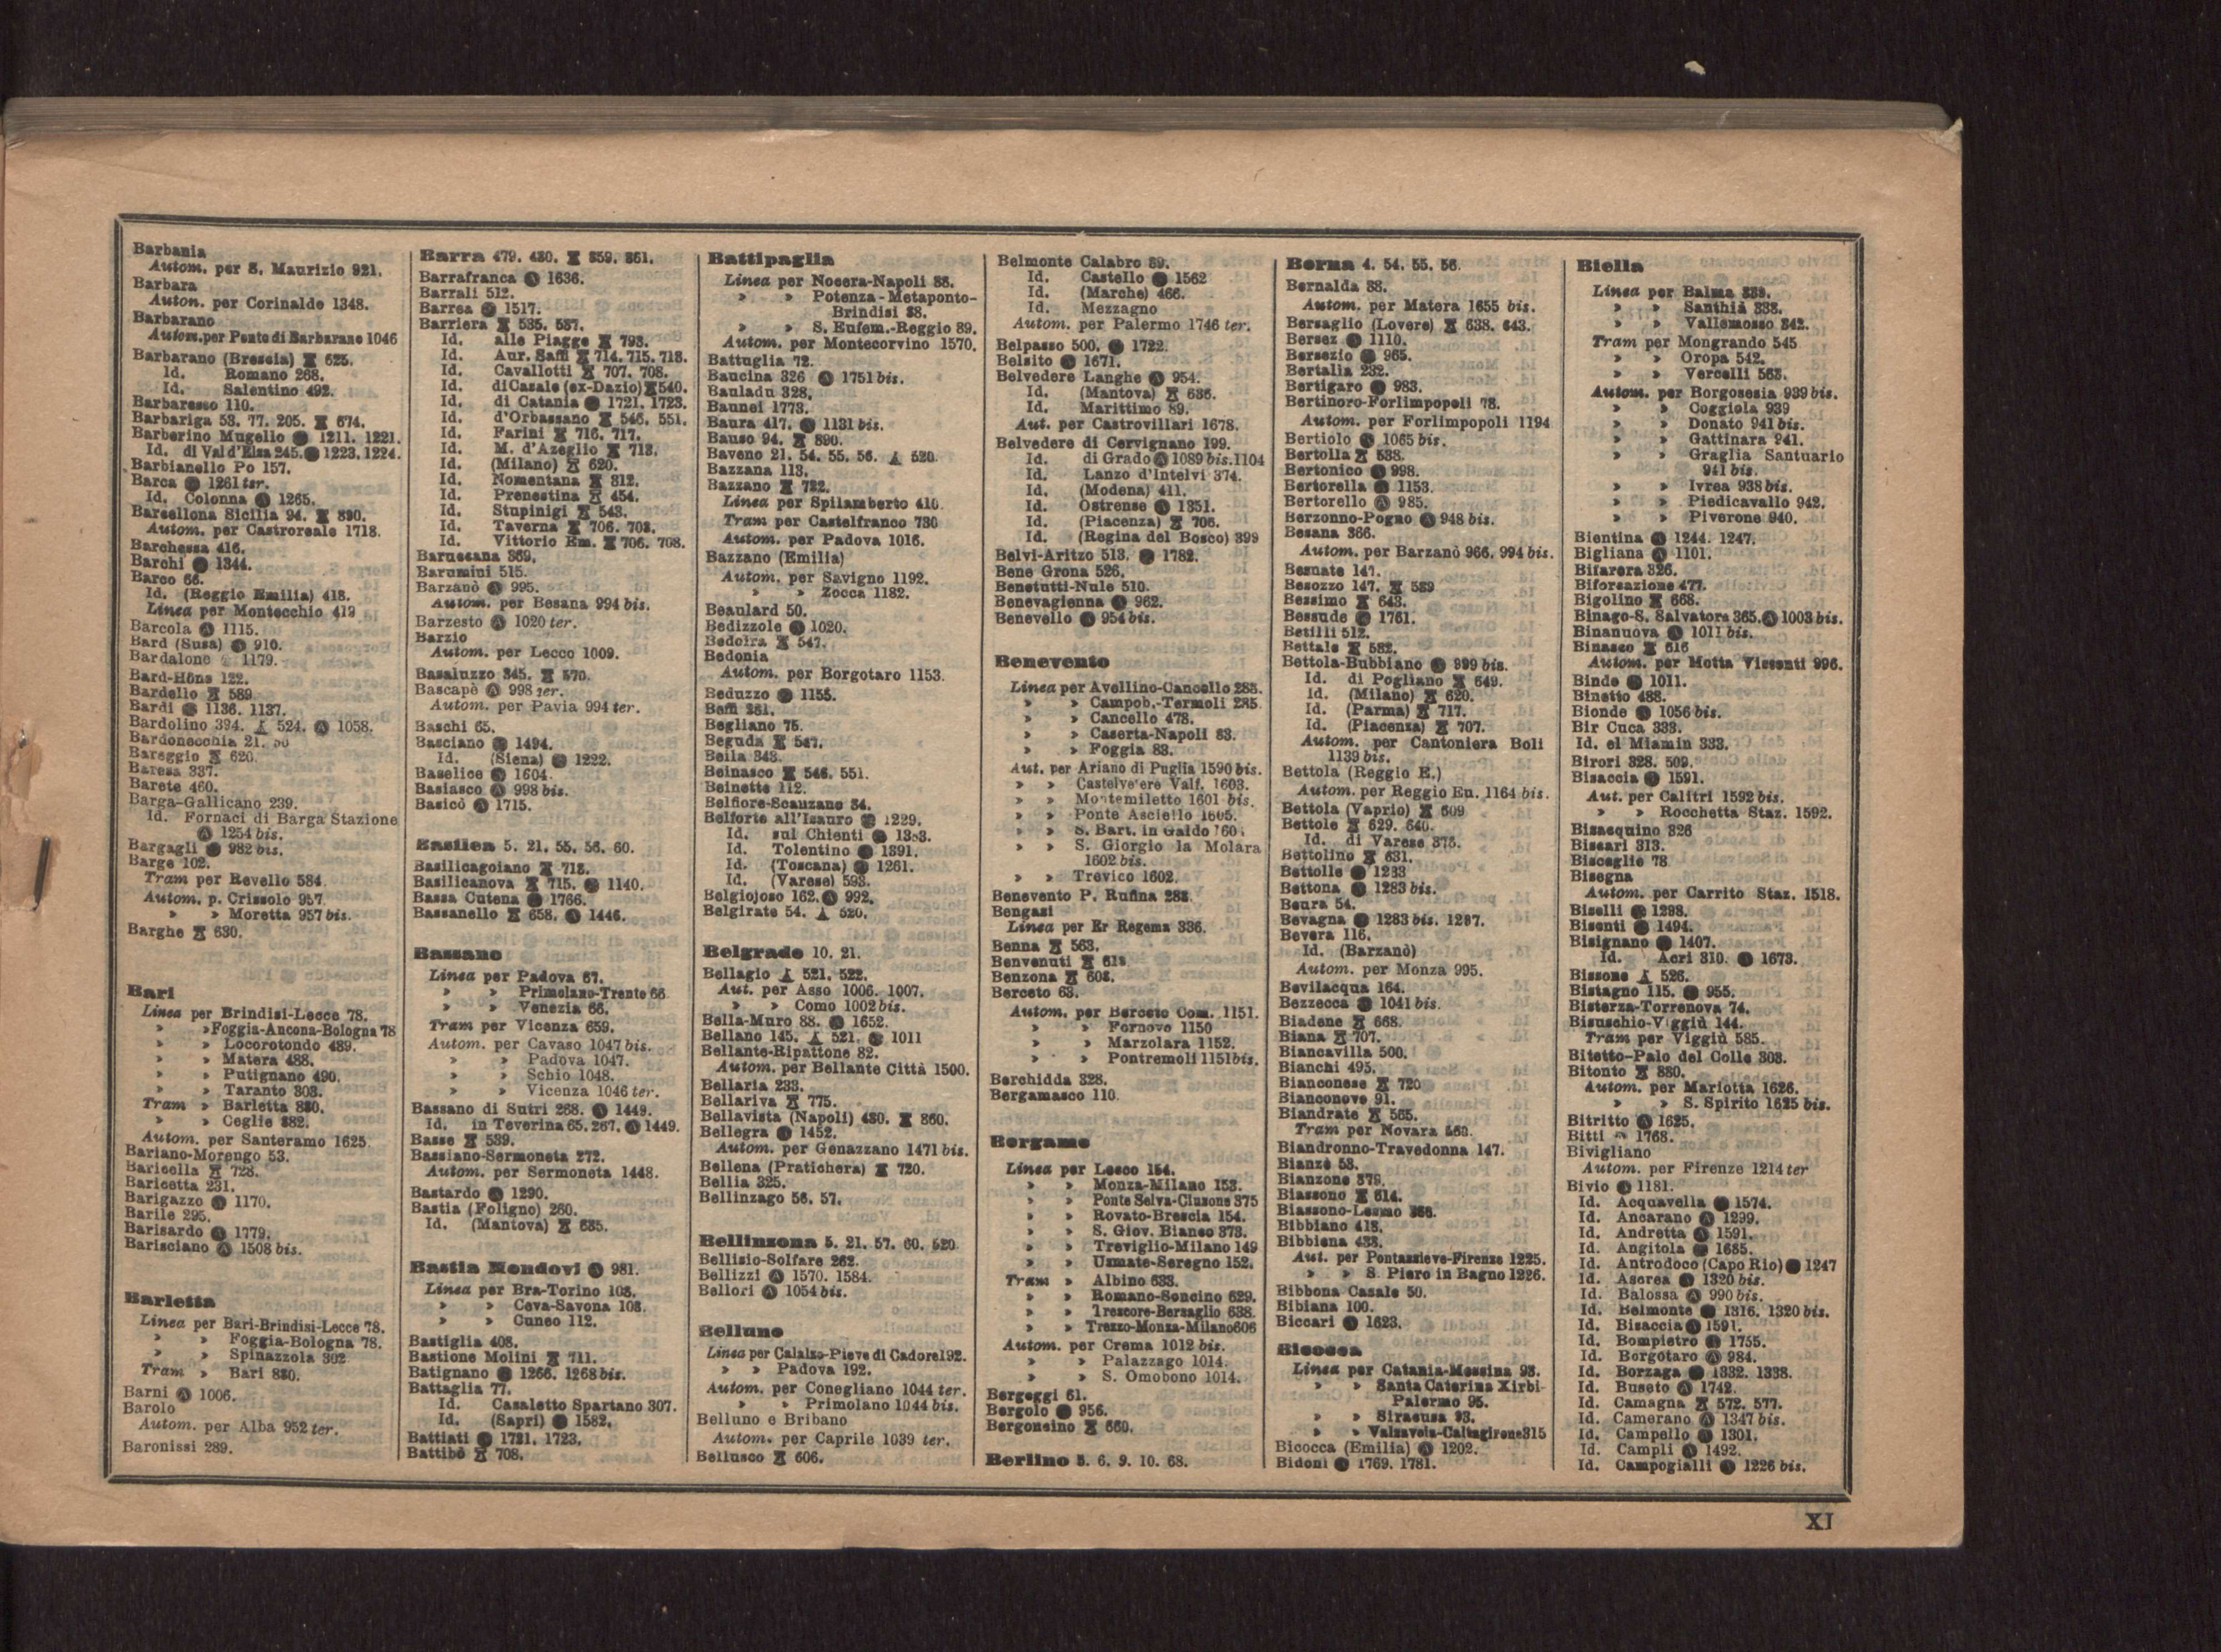 Barbania
Autom. per S. Maurizio 921.
Barbara
Auton. per Corinaldo 1348.
Barbarano
Autom. per Ponte di Barbarano 1046
Barbarano (Brescia) 625.
Id. Romano 268.
Id. Salentino 492.
Barbaresso 110.
Barbariga 53. 77. 205. 674.
Barberino Mugello 1211. 1221.
Id. di Val d'Elsa 245. 1223. 1224.
Barbianello Po 157.
Barca 1261 ter.
Id. Colonna 1265.
Barcellona Sicilia 94. 890.
Autom. per Castroreale 1718.
Barchessa 416.
Barchi 1344.
Barco 66.
Id. (Reggio Emilia) 418.
Linea per Montecchio 419
Barcola Ⓐ 1115.
Bard (Susa) 910.
Bardalone 1179.
Bard-Hône 122.
Bardello 589
Bardi 1136. 1137.
Bardolino 394. 524. Ⓐ 1058.
Bardonecchia 21. 50
Bareggio 620.
Baressa 337.
Barete 460.
Barga-Gallicano 239.
Id. Fornaci di Barga Stazione
Ⓐ 1254 bis.
Bargagli 982 bis.
Barge 102.
Tram per Revello 584.
Autom. p. Crissolo 957.
» » Moretta 957 bis.
Barghe 630.
Bari
Linea per Brindisi-Lecce 78.
» » Foggia-Ancona-Bologna 78
» » Locorotondo 489.
» » Matera 488.
» » Putignano 490.
» » Taranto 303.
Tram » Barletta 880.
» » Ceglie 882.
Autom. per Santeramo 1625.
Bariano-Morengo 53.
Baricella 728.
Baricetta 231.
Barigazzo 1170.
Barile 295.
Barisardo 1779.
Barisciano Ⓐ 1508 bis.
Barletta
Linea per Bari-Brindisi-Lecce 78.
» » Foggia-Bologna 78.
» » Spinazzola 302
Tram » Bari 880.
Barni Ⓐ 1006.
Barolo
Autom. per Alba 952 ter.
Baronissi 289.
Barra 479. 480. 859. 861.
Barrafranca Ⓐ 1636.
Barrali 512.
Barrea 1517.
Barriera 535. 537.
Id. alle Piagge 793.
Id. Aur. Saffi 714. 715. 718.
Id. Cavallotti 707. 708.
Id. di Casale (ex-Dazio) 540.
Id. di Catania 1721. 1723.
Id. d'Orbassano 546. 551.
Id. Farini 716. 717.
Id. M. d'Azeglio 713.
Id. (Milano) 620.
Id. Nomentana 812.
Id. Prenestina 454.
Id. Stupinigi 543.
Id. Taverna 706. 708.
Id. Vittorio Em. 706. 708.
Barucana 369.
Barumini 515.
Barzanò Ⓐ 995.
Autom. per Besana 994 bis.
Barzesto Ⓐ 1020 ter.
Barzio
Autom. per Lecco 1009.
Basaluzzo 345. 570.
Bascapè Ⓐ 998 ter.
Autom. per Pavia 994 ter.
Baschi 65.
Basciano 1494.
Id. (Siena) 1222.
Baselice 1604.
Basiasco Ⓐ 998 bis.
Basicò Ⓐ 1715.
Basilea 5. 21. 55. 56. 60.
Basilicagoiano 713.
Basilicanova 715. 1140.
Bassa Cutena 1766.
Bassanello 658. Ⓐ 1446.
Bassano
Linea per Padova 67.
» » Primolano-Trento 66
» » Venezia 66.
Tram per Vicenza 659.
Autom. per Cavaso 1047 bis.
» » Padova 1047.
» » Schio 1048.
» » Vicenza 1046 ter.
Bassano di Sutri 268. Ⓐ 1449.
Id. in Teverina 65. 267. Ⓐ 1449.
Basse 539.
Bassiano-Sermoneta 272.
Autom. per Sermoneta 1448.
Bastardo 1290.
Bastia (Foligno) 260.
Id. (Mantova) 635.
Bastia Mondovì 981.
Linea per Bra-Torino 108.
» » Ceva-Savona 108.
» » Cuneo 112.
Bastiglia 408.
Bastione Molini 711.
Batignano 1266. 1268 bis.
Battaglia 77.
Id. Casaletto Spartano 307.
Id. (Sapri) 1582.
Battiati 1721. 1723.
Battibò 708.
Battipaglia
Linea per Nocera-Napoli 88.
» » Potenza-Metaponto-
Brindisi 88.
» » S. Eufem.-Reggio 89.
Autom. per Montecorvino 1570.
Battuglia 72.
Baucina 326 Ⓐ 1751 bis.
Bauladu 328.
Baunei 1773.
Baura 417. 1131 bis.
Bauso 94. 890.
Baveno 21. 54. 55. 56. 520.
Bazzana 113.
Bazzano 722.
Linea per Spilamberto 410.
Tram per Castelfranco 730
Autom. per Padova 1016.
Bazzano (Emilia)
Autom. per Savigno 1192.
» » Zocca 1182.
Beaulard 50.
Bedizzole 1020.
Bedoira 547.
Bedonia
Autom. per Borgotaro 1153.
Beduzzo 1155.
Beffi 261.
Begliano 75.
Beguda 547.
Beila 343.
Beinasco 546. 551.
Beinette 112.
Belfiore-Scauzano 34.
Belforte all'Isauro 1229.
Id. sul Chienti 1383.
Id. Tolentino 1391.
Id. (Toscana) 1261.
Id. (Varese) 593.
Belgiojoso 162. 992.
Belgirate 54. 520.
Belgrado 10. 21.
Bellagio 521. 522.
Aut. per Asso 1006. 1007.
» » Como 1002 bis.
Bella-Muro 88. 1652.
Bellano 145. 521. 1011
Bellante-Ripattone 82.
Autom. per Bellante Città 1500.
Bellaria 233.
Bellariva 775.
Bellavista (Napoli) 480. 860.
Bellegra 1452.
Autom. per Genazzano 1471 bis.
Bellena (Pratichera) 720.
Bellia 325.
Bellinzago 56. 57.
Bellinzona 5. 21. 57. 60. 520
Bellisio-Solfare 262.
Bellizzi Ⓐ 1570. 1584.
Bellori Ⓐ 1054 bis.
Belluno
Linea per Calalzo-Pieve di Cadore 192.
» » Padova 192.
Autom. per Conegliano 1044 ter.
» » Primolano 1044 bis.
Belluno e Bribano
Autom. per Caprile 1039 ter.
Bellusco 606.
Belmonte Calabro 89.
Id. Castello 1562
Id. (Marche) 466.
Id. Mezzagno
Autom. per Palermo 1746 ter.
Belpasso 500. 1722.
Belsito 1671.
Belvedere Langhe Ⓐ 954.
Id. (Mantova) 636.
Id. Marittimo 89.
Aut. per Castrovillari 1678.
Belvedere di Cervignano 199.
Id. di Grado Ⓐ 1089 bis. 1104
Id. Lanzo d'Intelvi 374.
Id. (Modena) 411.
Id. Ostrense 1351.
Id. (Piacenza) 706.
Id. (Regina del Bosco) 399
Belvi-Aritzo 513. 1782.
Bene Grona 526.
Benetutti-Nule 510.
Benevagienna 962.
Benevello 954 bis.
Benevento
Linea per Avellino-Cancello 285.
» » Campob.-Termoli 285.
» » Cancello 478.
» » Caserta-Napoli 83.
» » Foggia 83.
Aut. per Ariano di Puglia 1590 bis.
» » Castelvetere Valf. 1603.
» » Montemiletto 1601 bis.
» » Ponte Asciello 1605.
» » S. Bart. in Galdo
» » S. Giorgio la Molara
1602 bis.
» » Trevico 1602.
Benevento P. Rufina 288.
Bengasi
Linea per Er Regema 336.
Benna 563.
Benvenuti 618
Benzona 608.
Berceto 63.
Autom. per Berceto Com. 1151.
» » Fornovo 1150
» » Marzolara 1152.
» » Pontremoli 1151 bis.
Berchidda 328.
Bergamasco 110.
Bergamo
Linea per Lecco 154.
» » Monza-Milano 153.
» » Ponte Selva-Clusone 375
» » Rovato-Brescia 154.
» » S. Giov. Bianco 373.
» » Treviglio-Milano 149
» » Usmate-Seregno 152.
Tram » Albino 633.
» » Romano-Soncino 629.
» » Trescore-Bersaglio 638.
» » Trezzo-Monza-Milano 606
Autom. per Crema 1012 bis.
» » Palazzago 1014.
» » S. Omobono 1014.
Bergeggi 61.
Bergolo 956.
Bergonsino 660.
Berlino 5. 6. 9. 10. 68.
Berna 4. 54. 55. 56.
Bernalda 88.
Autom. per Matera 1655 bis.
Bersaglio (Lovere) 638. 643.
Bersez 1110.
Bersezio 965.
Bertalia 232.
Bertigaro 983.
Bertinoro-Forlimpopoli 78.
Autom. per Forlimpopoli 1194
Bertiolo 1065 bis.
Bertolla 538.
Bertonico 998.
Bertorella 1153.
Bertorello Ⓐ 985.
Berzonno-Pogno Ⓐ 948 bis.
Besana 366.
Autom. per Barzanò 966. 994 bis.
Besnate 147.
Besozzo 147. 589
Bessimo 643.
Bessude 1761.
Betilli 512.
Bettale 582.
Bettola-Bubbiano 999 bis.
Id. di Pogliano 649.
Id. (Milano) 620.
Id. (Parma) 717.
Id. (Piacenza) 707.
Autom. per Cantoniera Boli
1139 bis.
Bettola (Reggio E.)
Autom. per Reggio Em. 1164 bis.
Bettola (Vaprio) 609
Bettole 629. 640.
Id. di Varese 375.
Bettolino 631.
Bettolle 1233
Bettona 1283 bis.
Beura 54.
Bevagna 1283 bis. 1297.
Bevera 116.
Id. (Barzanò)
Autom. per Monza 995.
Bevilacqua 164.
Bezzecca 1041 bis.
Biadene 668.
Biana 707.
Biancavilla 500.
Bianchi 495.
Bianconese 720
Bianconovo 91.
Biandrate 565.
Tram per Novara 560.
Biandronno-Travedonna 147.
Bianzè 53.
Bianzone 379.
Biassono 614.
Biassono-Lesmo 366.
Bibbiano 418.
Bibbiena 438.
Aut. per Pontassieve-Firenze 1225.
» » S. Piero in Bagno 1226.
Bibbona Casale 50.
Bibiana 100.
Biccari 1623.
Bicocca
Linea per Catania-Messina 93.
» » Santa Caterina Xirbi-
Palermo 95.
» » Siracusa 93.
» » Valsavoia-Caltagirone 315
Bicocca (Emilia) Ⓐ 1202.
Bidoni 1769. 1781.
Biella
Linea per Balma 339.
» » Santhià 338.
» » Vallemosso 342.
Tram per Mongrando 545
» » Oropa 542.
» » Vercelli 563.
Autom. per Borgosesia 939 bis.
» » Coggiola 939
» » Donato 941 bis.
» » Gattinara 941.
» » Graglia Santuario
941 bis.
» » Ivrea 938 bis.
» » Piedicavallo 942.
» » Piverone 940.
Bientina 1244. 1247.
Bigliana Ⓐ 1101.
Bifarera 326.
Biforcazione 477.
Bigolino 668.
Binago-S. Salvatore 365. Ⓐ 1003 bis.
Binanuova Ⓐ 1011 bis.
Binasco 616
Autom. per Motta Visconti 996.
Binde 1011.
Binetto 488.
Bionde Ⓐ 1056 bis.
Bir Cuca 333.
Id. el Miamin 333.
Birori 328. 509.
Bisaccia 1591.
Aut. per Calitri 1592 bis.
» » Rocchetta Staz. 1592.
Bisacquino 326
Biscari 313.
Bisceglie 78
Bisegna
Autom. per Carrito Staz. 1518.
Biselli 1298.
Bisenti 1494.
Bisignano 1407.
Id. Acri 310. 1673.
Bissone 526.
Bistagno 115. 955.
Bisterza-Torrenova 74.
Bisuschio-Viggiù 144.
Tram per Viggiù 585.
Bitetto-Palo del Colle 303.
Bitonto 880.
Autom. per Mariotta 1626.
» » S. Spirito 1625 bis.
Bitritto Ⓐ 1625.
Bitti 1768.
Bivigliano
Autom. per Firenze 1214 ter
Bivio 1181.
Id. Acquavella 1574.
Id. Ancarano Ⓐ 1299.
Id. Andretta Ⓐ 1591.
Id. Angitola 1685.
Id. Antrodoco (Capo Rio) 1247
Id. Ascrea 1320 bis.
Id. Balossa Ⓐ 990 bis.
Id. Belmonte 1316. 1320 bis.
Id. Bisaccia Ⓐ 1591.
Id. Bompietro 1755.
Id. Borgotaro Ⓐ 984.
Id. Borzaga 1332. 1338.
Id. Buseto Ⓐ 1742.
Id. Camagna 572. 577.
Id. Camerano Ⓐ 1347 bis.
Id. Campello 1301.
Id. Campli Ⓐ 1492.
Id. Campogialli 1226 bis.
XI